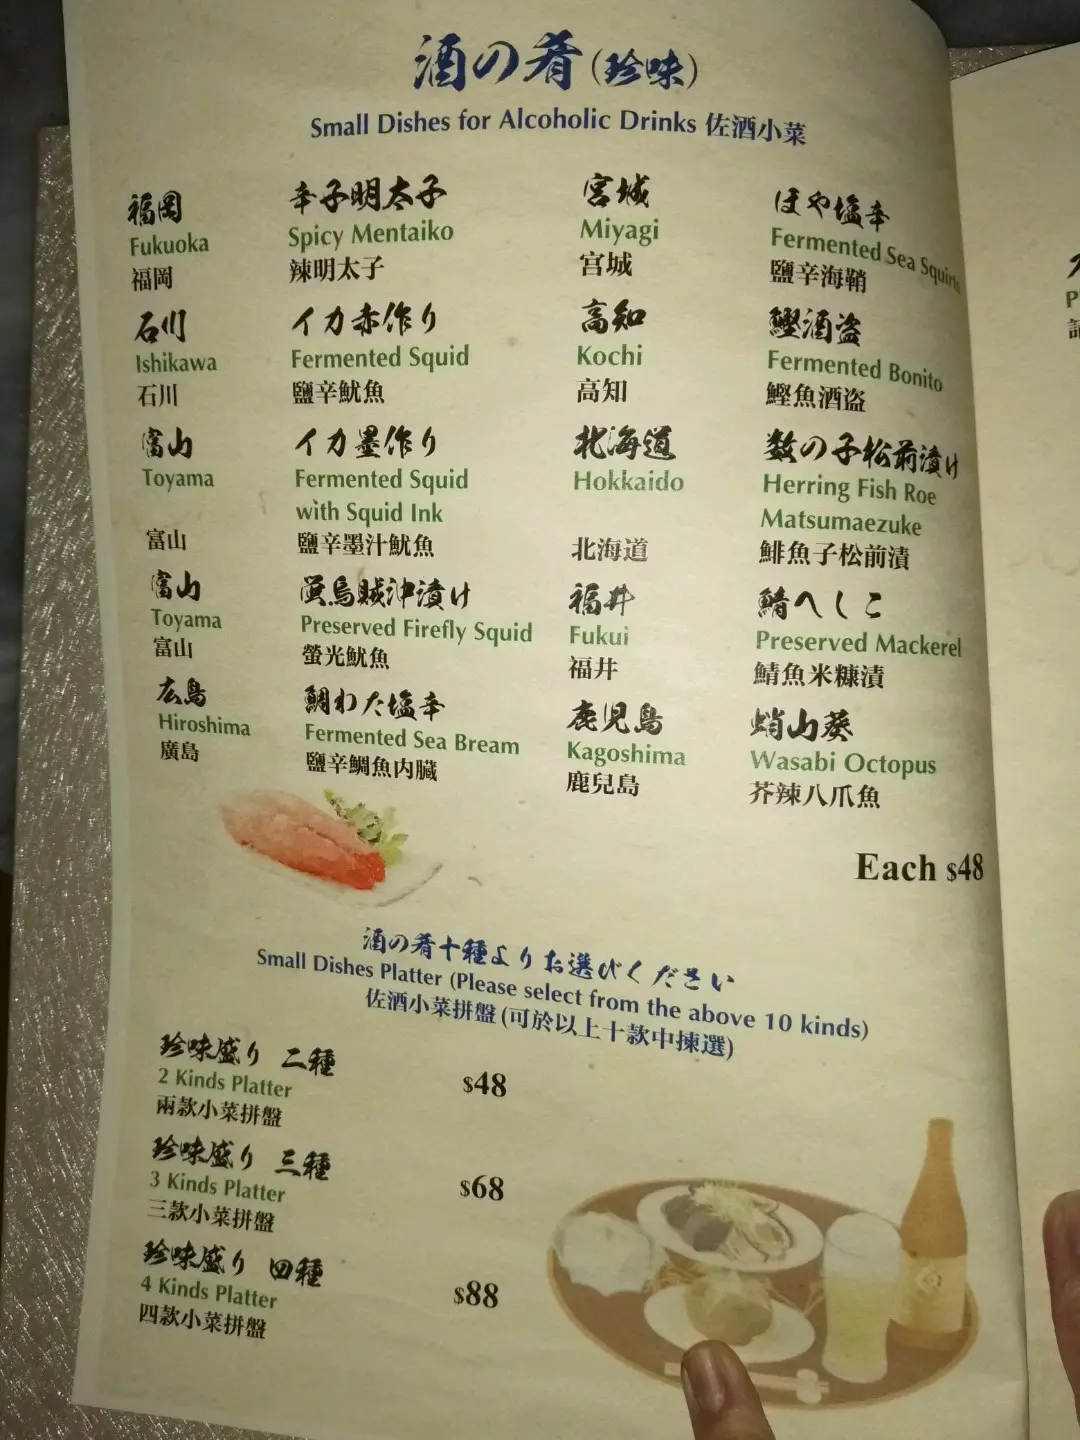 酒の肴(珍味)
Small Dishes for Alcoholic Drinks 佐酒小菜
福岡 辛子明太子
Fukuoka Spicy Mentaiko
福岡 辣明太子
石川 イカ赤作り
Ishikawa Fermented Squid
石川 鹽辛魷魚
富山 イカ墨作り
Toyama Fermented Squid
with Squid Ink
富山 鹽辛墨汁魷魚
富山 蛍烏賊沖漬け
Toyama Preserved Firefly Squid
富山 螢光魷魚
広島 鯛わた塩辛
Hiroshima Fermented Sea Bream
廣島 鹽辛鯛魚内臓
宮城 ほや塩辛
Miyagi Fermented Sea Squirts
宮城 鹽辛海鞘
高知 鰹酒盗
Kochi Fermented Bonito
高知 鰹魚酒盗
北海道 数の子松前漬け
Hokkaido Herring Fish Roe
Matsumaezuke
北海道 鯡魚子松前漬
福井 鯖へしこ
Fukui Preserved Mackerel
福井 鯖魚米糠漬
鹿児島 蛸山葵
Kagoshima Wasabi Octopus
鹿兒島 芥辣八爪魚
Each $48
酒の肴十種よりお選びください
Small Dishes Platter (Please select from the above 10 kinds)
佐酒小菜拼盤(可於以上十款中揀選)
珍味盛り 二種
2 Kinds Platter $48
兩款小菜拼盤
珍味盛り 三種
3 Kinds Platter $68
三款小菜拼盤
珍味盛り 四種
4 Kinds Platter $88
四款小菜拼盤